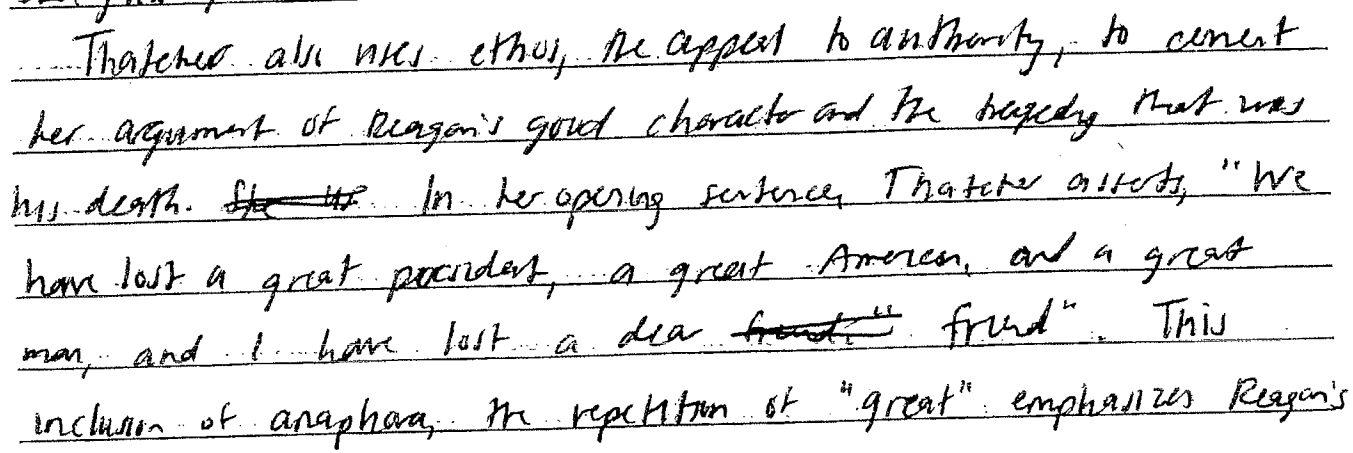 Thatcher also uses ethos, the appeal to authority, to cement
her argument of Reagan's good character and the tragedy that was
his death. She us In her opening sentence, Thatcher asserts, "We
have lost a great president, a great American, and a great
man, and I have lost a dear friend." friend". This
inclusion of anaphora, the repetition of "great" emphasizes Reagan's